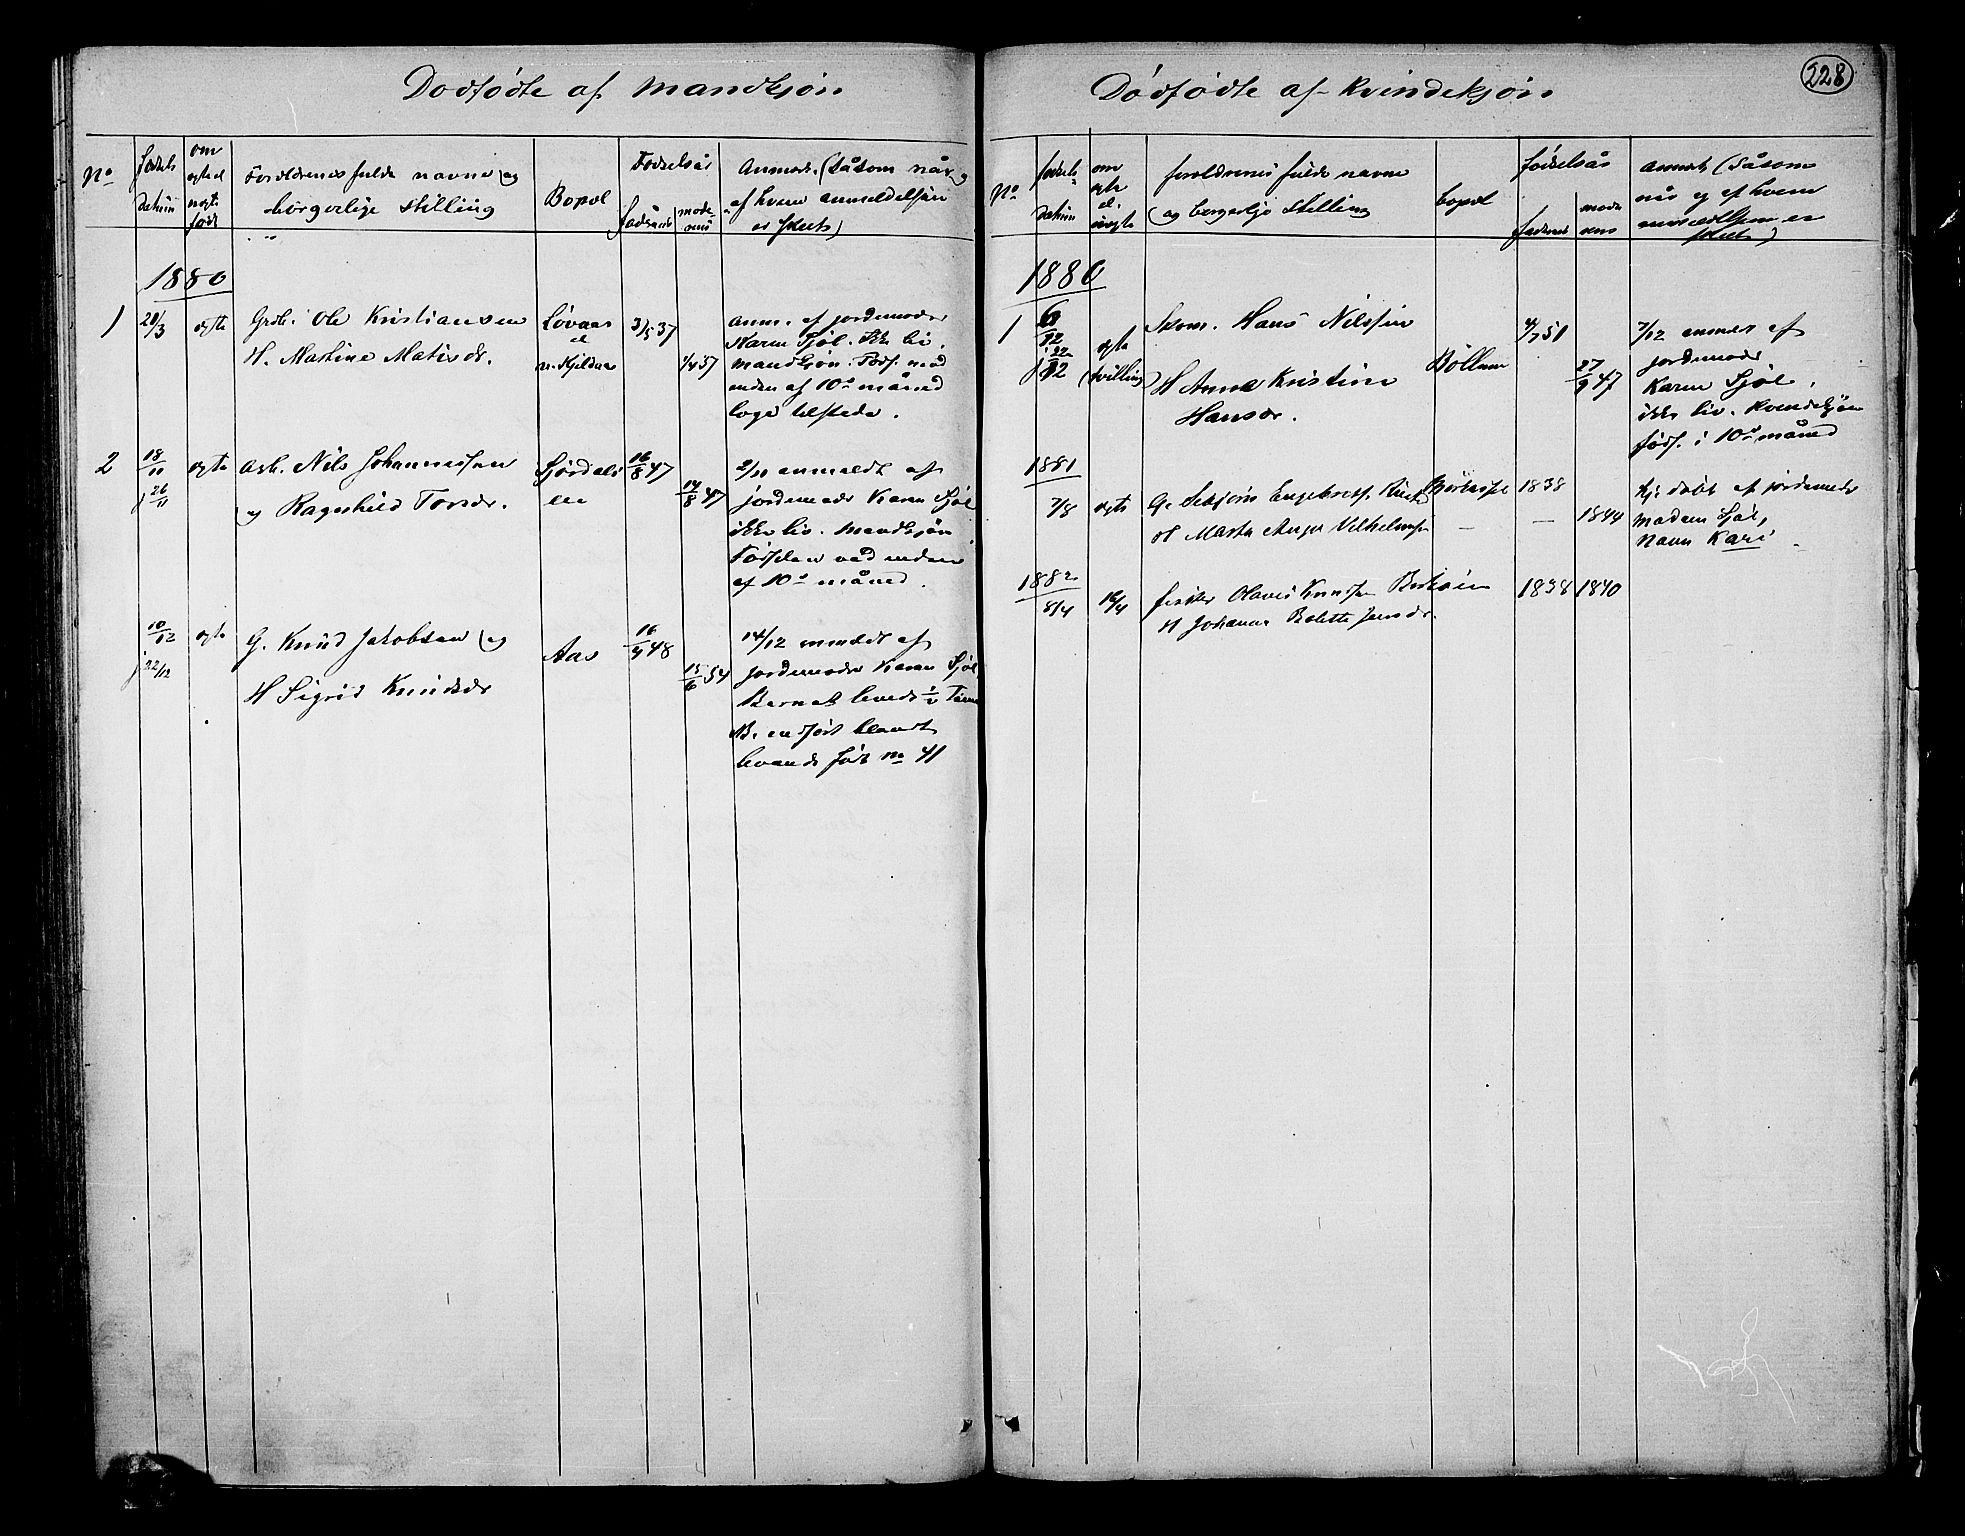 Dødfødte af Mandkjøn
No
fødsels
datum
om
ægte el
uægte
født
Forældrenes fulde navne og
borgerlige Stilling
Bopæl
Fødselsår
faderens
moderens
Anmærk. (såsom når og
af hvem anmeldelsen
er skeet)
1880
1
20/3
ægte
Grdb. Ole Kristiansen
H. Martine Matisdr.
Løvaas
3/5 37
1/4 37
anm. af jordemoder
Karen Sjøl. Ikke liv.
mandkjøn. Føds. ved
enden af 10de måned
2
18/11
j 26/11
ægte
Arb. Nils Johannessen
og Ragnhild Torsdr.
16/8 47
14/8 47
2/11 anmeldt af
jordemoder Karen Sjøl
ikke liv. Mandkjøn
Fødselen ved enden
af 10de måned.
10/12
j 22/12
ægte
G. Knud Jakobsen og
H Sigrid Knudsdr
Aas
16/4 48
15/6 54
14/12 anmeldt af
jordemoder Karen Sjøl
Barnet levede ½ Time
B. indført blandt
levende født no 41
Dødfødte af Kvindekjøn
228
No
fødsels
datum
om
ægte
el.
uægte
forældrenes fulde navne
og borgerlige Stilling
bopæl
fødselsår
faderens
moderens
anmærk (såsom
når og af hvem
anmeldelsen er
skeet)
1880
1
6/12
j 22/12
ægte
(tvilling)
Skom. Hans Nilssen
H Anne Kristine
Hansdr.
4/7 51
27/9 47
7/12 anmeldt af
jordemoder
Karen Sjøl.
ikke liv. Kvindekjøn
føds. i 10de måned
1881
7/8
ægte
H Marta Vilhelmsdr
1838
1844
hj. døbt af jordemoder
Madam Sjøl,
Navn Kari
1882
8/4
16/4
fisker Olaves Knudsen
H Johanne Bolette Jensdr.
1838
1840